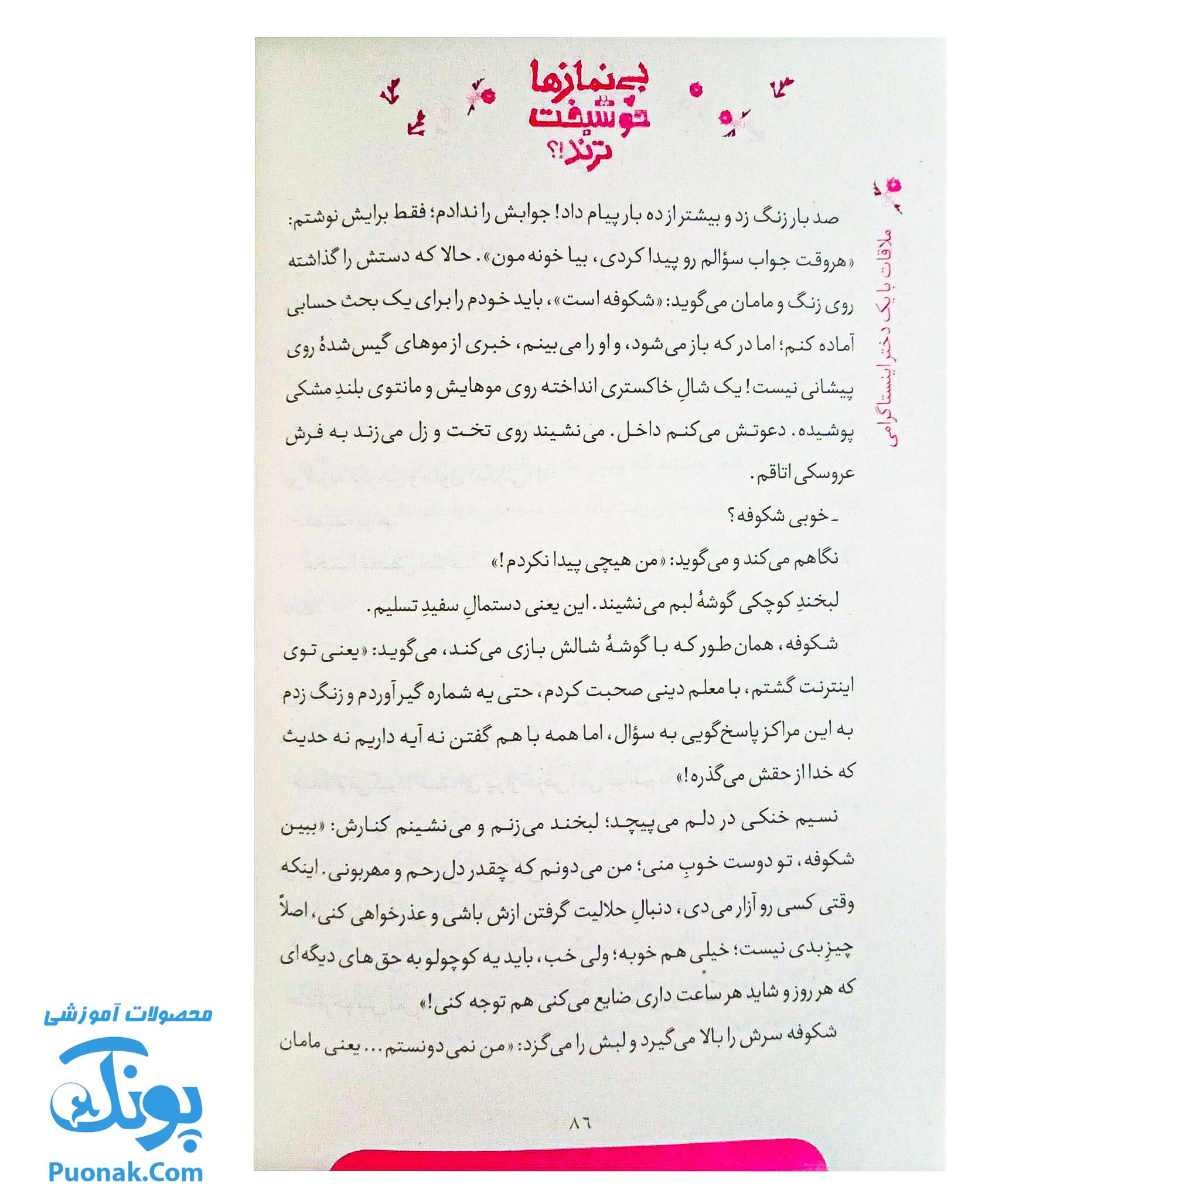 بی‌نمازها
خوشبخت
ترند!؟
ملاقات با یک دختر اینستاگرامی
صد بار زنگ زد و بیشتر از ده بار پیام داد! جوابش را ندادم؛ فقط برایش نوشتم:
«هروقت جواب سؤالم رو پیدا کردی، بیا خونه‌مون». حالا که دستش را گذاشته
روی زنگ و مامان می‌گوید: «شکوفه است»، باید خودم را برای یک بحث حسابی
آماده کنم؛ اما در که باز می‌شود، و او را می‌بینم، خبری از موهای گیس‌شدهٔ روی
پیشانی نیست! یک شالِ خاکستری انداخته روی موهایش و مانتوی بلندِ مشکی
پوشیده. دعوتش می‌کنم داخل. می‌نشیند روی تخت و زل می‌زند به فرش
عروسکی اتاقم.
ـ خوبی شکوفه؟
نگاهم می‌کند و می‌گوید: «من هیچی پیدا نکردم!»
لبخندِ کوچکی گوشهٔ لبم می‌نشیند. این یعنی دستمالِ سفیدِ تسلیم.
شکوفه، همان طور که با گوشهٔ شالش بازی می‌کند، می‌گوید: «یعنی توی
اینترنت گشتم، با معلم دینی صحبت کردم، حتی یه شماره گیر آوردم و زنگ زدم
به این مراکز پاسخ‌گویی به سؤال، اما همه با هم گفتن نه آیه داریم نه حدیث
که خدا از حقش می‌گذره!»
نسیم خنکی در دلم می‌پیچد؛ لبخند می‌زنم و می‌نشینم کنارش: «ببین
شکوفه، تو دوست خوبِ منی؛ من می‌دونم که چقدر دل رحم و مهربونی. اینکه
وقتی کسی رو آزار می‌دی، دنبالِ حلالیت گرفتن ازش باشی و عذرخواهی کنی، اصلاً
چیزِ بدی نیست؛ خیلی هم خوبه؛ ولی خب، باید یه کوچولو به حق‌های دیگه‌ای
که هر روز و شاید هر ساعت داری ضایع می‌کنی هم توجه کنی!»
شکوفه سرش را بالا می‌گیرد و لبش را می‌گزد: «من نمی‌دونستم... یعنی مامان
۸۶
محصولات آموزشی
پونک
Puonak.Com